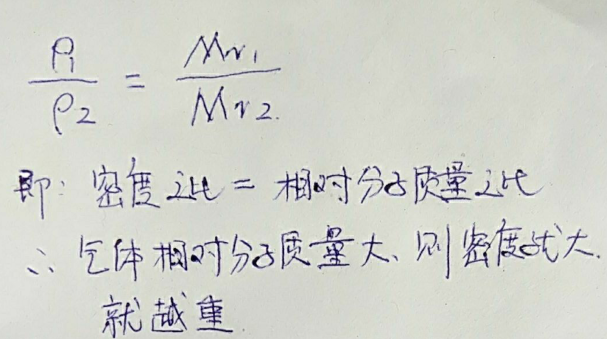 ρ1/ρ2 = Mr1/Mr2.
即: 密度之比 = 相对分子质量之比
∴ 气体相对分子质量大、则密度就大.
就越重.